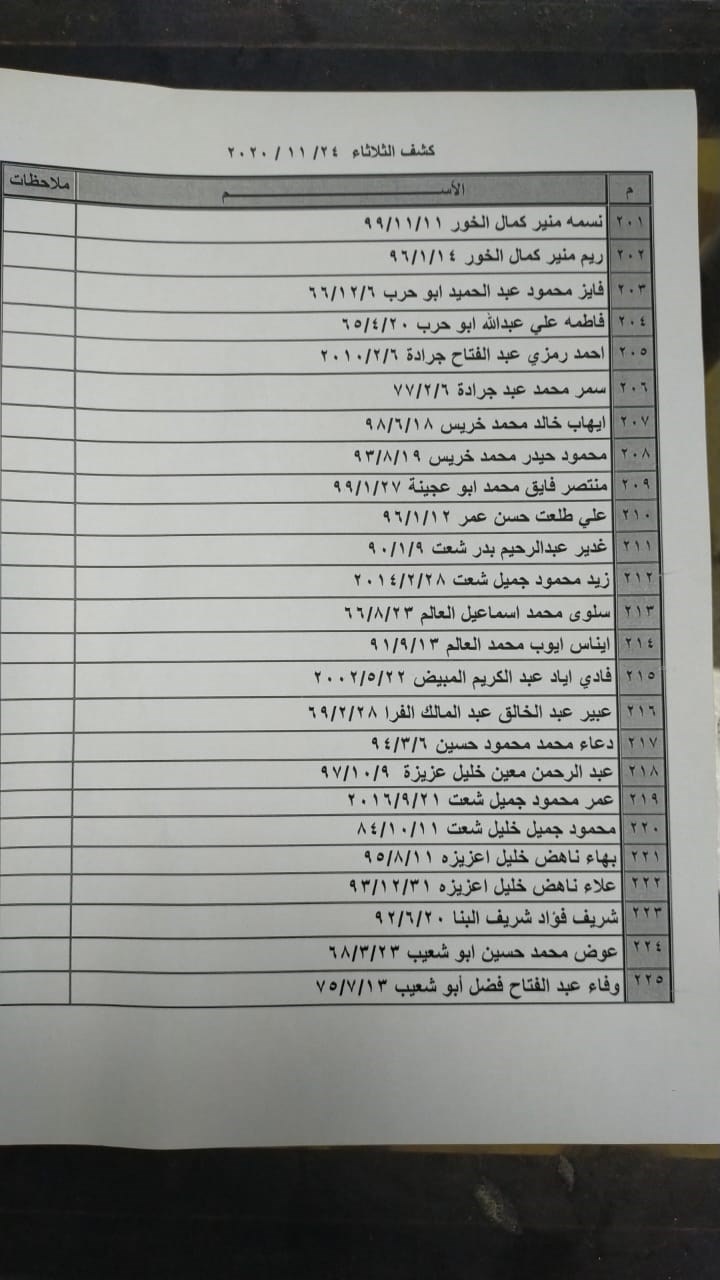 كشف الثلاثاء ٢٤/ ١١ / ٢٠٢٠
م الأســــــــــــم ملاحظات
٢٠١ نسمه منير كمال الخور ٩٩/١١/١١
٢٠٢ ريم منير كمال الخور ٩٦/١/١٤
٢٠٣ فايز محمود عبد الحميد ابو حرب ٦٦/١٢/٦
٢٠٤ فاطمه علي عبدالله ابو حرب ٦٥/٤/٢٠
٢٠٥ احمد رمزي عبد الفتاح جرادة ٢٠١٠/٢/٦
٢٠٦ سمر محمد عبد جرادة ٧٧/٢/٦
٢٠٧ ايهاب خالد محمد خريس ٩٨/٦/١٨
٢٠٨ محمود حيدر محمد خريس ٩٣/٨/١٩
٢٠٩ منتصر فايق محمد ابو عجينة ٩٩/١/٢٧
٢١٠ علي طلعت حسن عمر ٩٦/١/١٢
٢١١ غدير عبدالرحيم بدر شعت ٩٠/١/٩
٢١٢ زيد محمود جميل شعت ٢٠١٤/٢/٢٨
٢١٣ سلوى محمد اسماعيل العالم ٦٦/٨/٢٣
٢١٤ ايناس ايوب محمد العالم ٩١/٩/١٣
٢١٥ فادي اياد عبد الكريم المبيض ٢٠٠٢/٥/٢٢
٢١٦ عبير عبد الخالق عبد المالك الفرا ٦٩/٢/٢٨
٢١٧ دعاء محمد محمود حسين ٩٤/٣/٦
٢١٨ عبد الرحمن معين خليل عزيزة ٩٧/١٠/٩
٢١٩ عمر محمود جميل شعت ٢٠١٦/٩/٢١
٢٢٠ محمود جميل خليل شعت ٨٤/١٠/١١
٢٢١ بهاء ناهض خليل اعزيزه ٩٥/٨/١١
٢٢٢ علاء ناهض خليل اعزيزه ٩٣/١٢/٣١
٢٢٣ شريف فؤاد شريف البنا ٩٢/٦/٢٠
٢٢٤ عوض محمد حسين ابو شعيب ٦٨/٣/٢٣
٢٢٥ وفاء عبد الفتاح فضل أبو شعيب ٧٥/٧/١٣